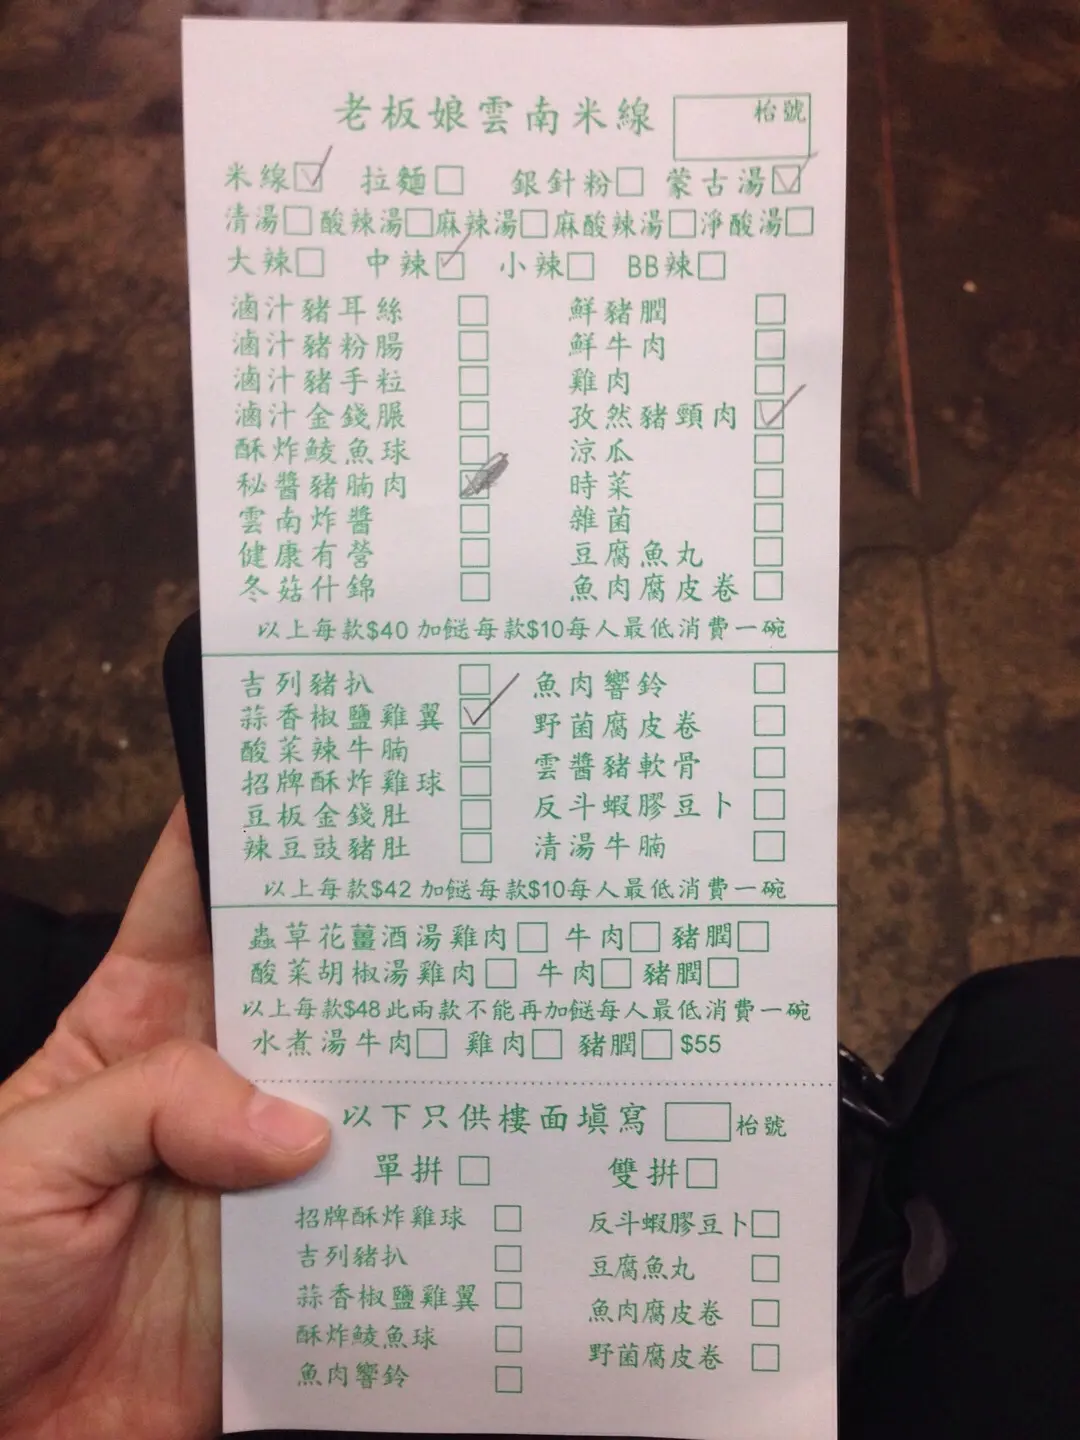 老板娘雲南米線 枱號
米線 拉麵 銀針粉 蒙古湯
清湯 酸辣湯 麻辣湯 麻酸辣湯 淨酸湯
大辣 中辣 小辣 BB辣
滷汁豬耳絲 鮮豬膶
滷汁豬粉腸 鮮牛肉
滷汁豬手粒 雞肉
滷汁金錢𦟌 孜然豬頸肉
酥炸鯪魚球 涼瓜
秘醬豬腩肉 時菜
雲南炸醬 雜菌
健康有營 豆腐魚丸
冬菇什錦 魚肉腐皮卷
以上每款$40 加餸每款$10每人最低消費一碗
吉列豬扒 魚肉響鈴
蒜香椒鹽雞翼 野菌腐皮卷
酸菜辣牛腩 雲醬豬軟骨
招牌酥炸雞球 反斗蝦膠豆卜
豆板金錢肚 清湯牛腩
辣豆豉豬肚
以上每款$42 加餸每款$10每人最低消費一碗
蟲草花薑酒湯雞肉 牛肉 豬膶
酸菜胡椒湯雞肉 牛肉 豬膶
以上每款$48此兩款不能再加餸每人最低消費一碗
水煮湯牛肉 雞肉 豬膶 $55
以下只供樓面填寫 枱號
單拼 雙拼
招牌酥炸雞球 反斗蝦膠豆卜
吉列豬扒 豆腐魚丸
蒜香椒鹽雞翼 魚肉腐皮卷
酥炸鯪魚球 野菌腐皮卷
魚肉響鈴